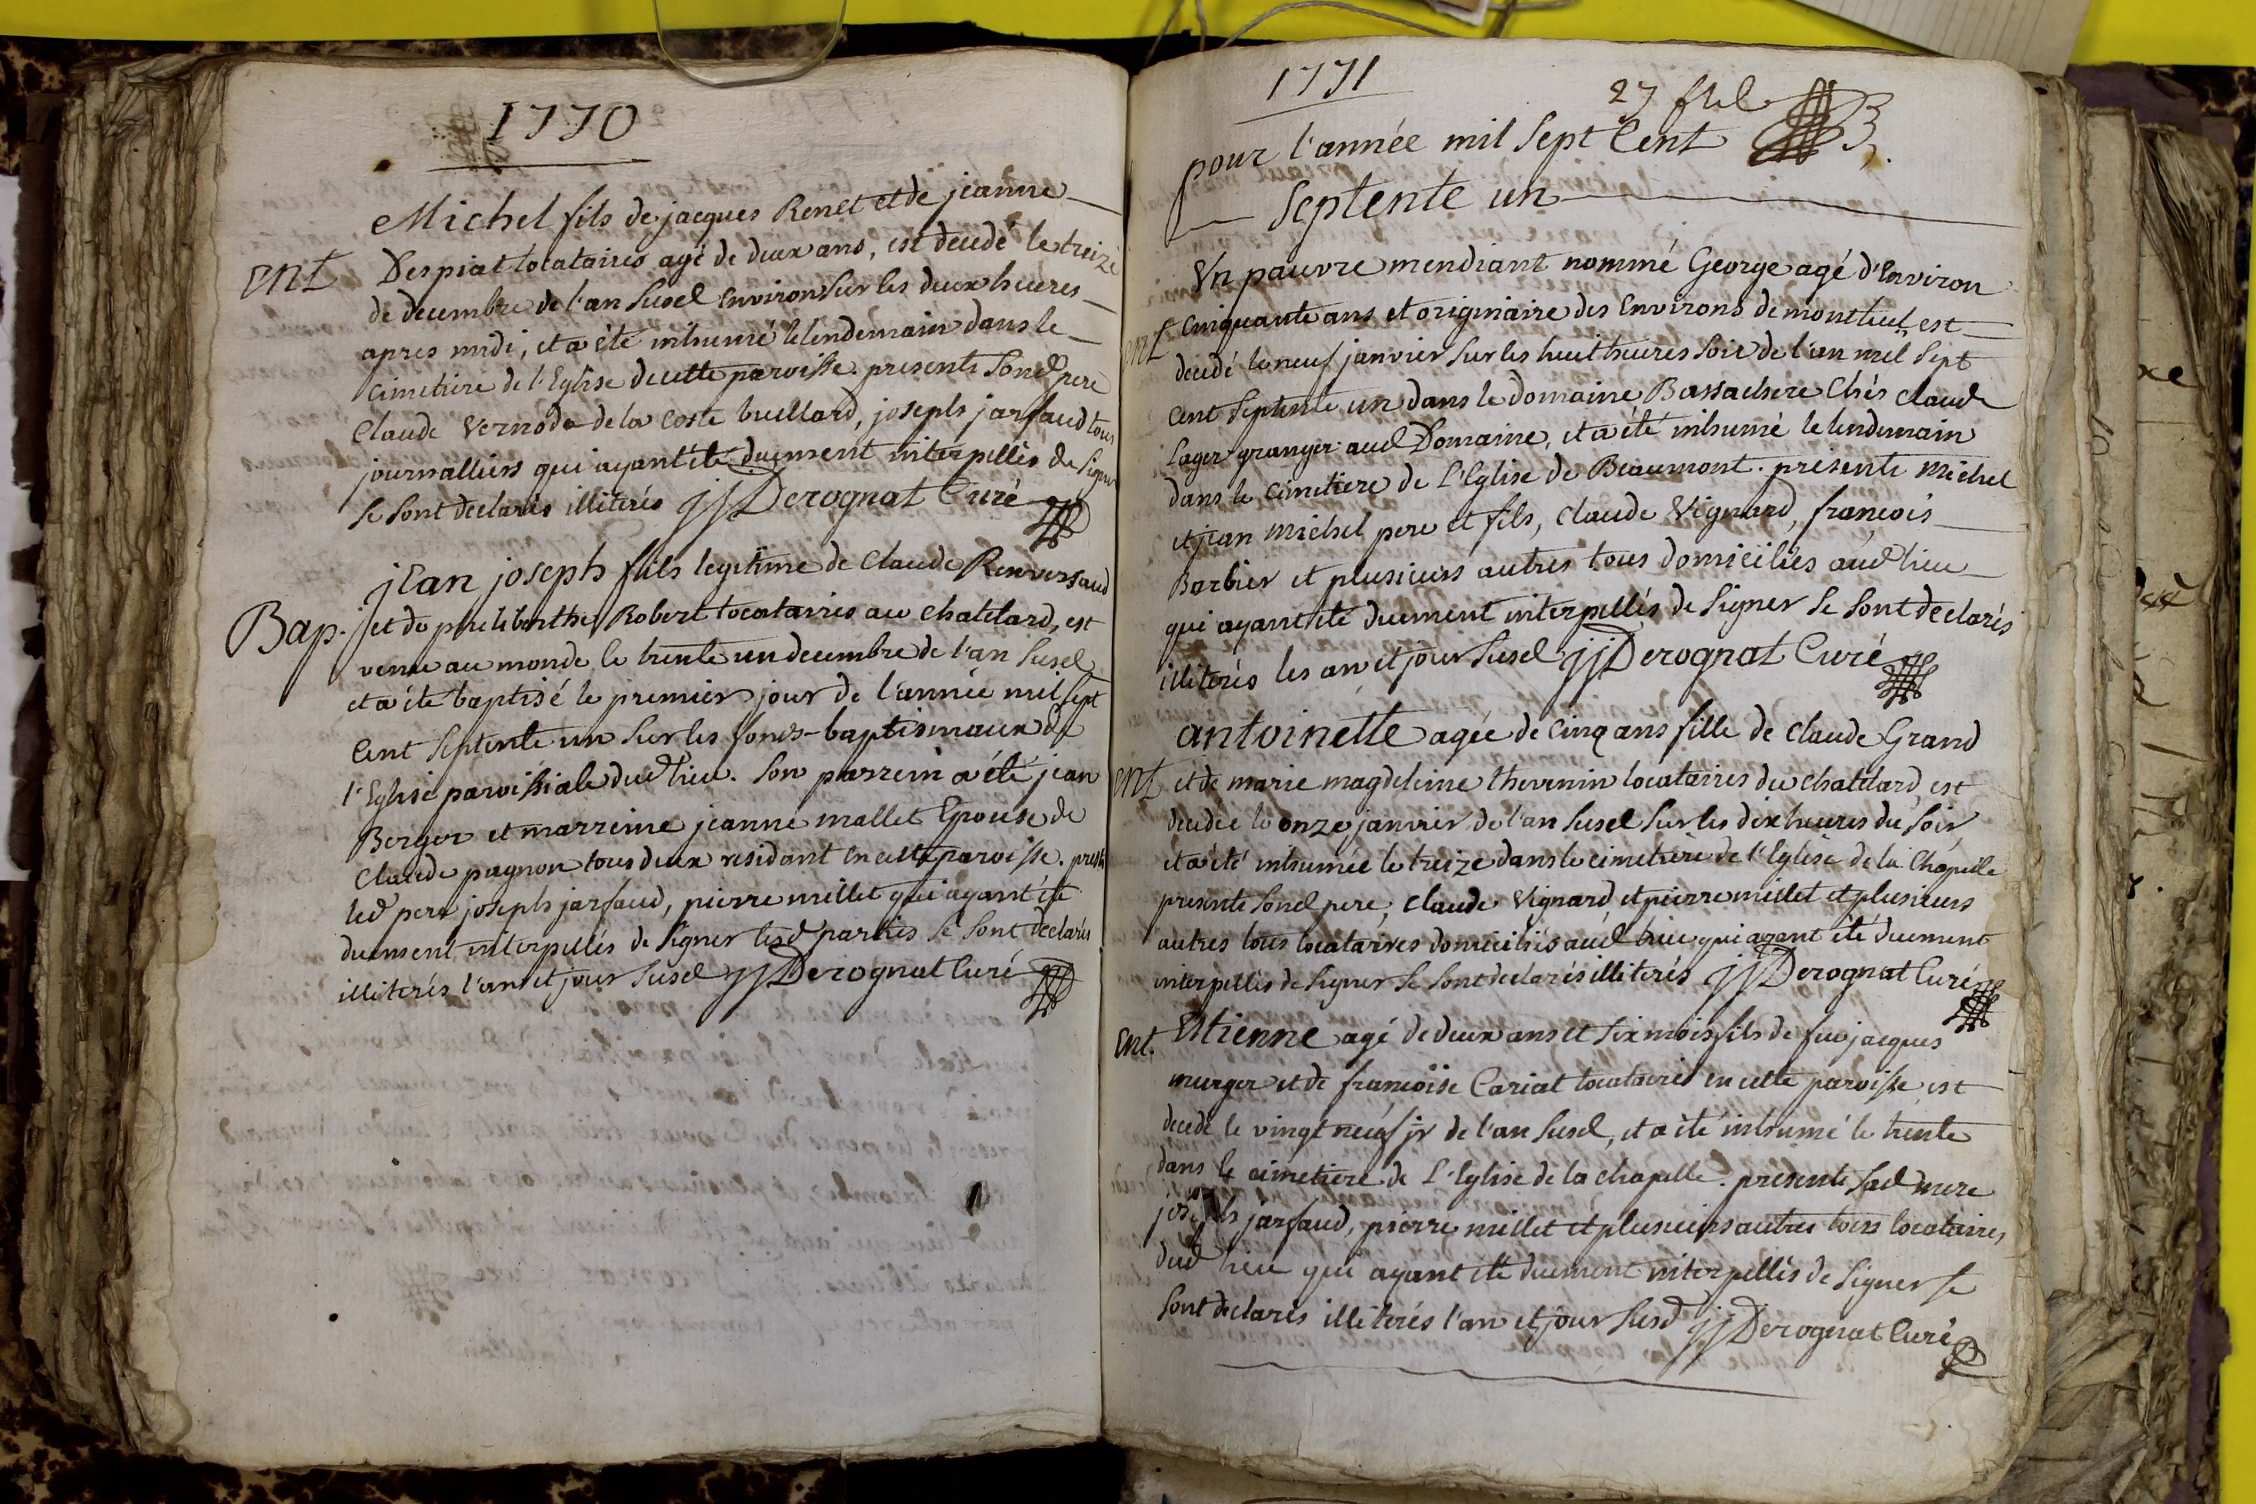 1770
Michel fils de jacques Renet et de jeanne
ent Despiat locataires agé de deux ans, est decedé le treize
de decembre de l'an Susd environ Sur les deux heures
apres midi, et a été inhumé le lendemain dans le
cimetiere de l'Eglise de cette paroisse. presents Sond pere
Claude Vernoda de la coste buellard, joseph jarfaud tous
journalliers qui ayant été duement interpellés de Signer
se Sont declarés illiterés jjDerognat Curé
jean joseph fils legitime de Claude Renversaud
Bap. et de philiberthe Robert locataires au chatelard, est
venu au monde le trente un decembre de l'an Susd
et a été baptisé le premier jour de l'année mil Sept
Cent Septente un Sur les fonds-baptismaux de
l'Eglise paroissiale dud lieu. Son parrein a été jean
Berger et marreine jeanne mallet Epouse de
Claude pagnon tous deux residant en cette paroisse. presents
led pere joseph jarfaud, pierre millet qui ayant été
duement interpellés de Signer lesd parties Se Sont declarés
illiterés l'an et jour Susd jjDerognat Curé
1771
27 fvel
pour l'année mil Sept Cent
Septente un
Un pauvre mendiant nommé George agé d'Environ
ent cinquante ans et originaire des Environs de montluel est
decedé le neuf janvier Sur les huit heures Soir de l'an mil Sept
Cent Septente un dans le domaine Bassachere Chés claude
Lager granger aud Domaine, et a été inhumé le lendemain
dans le cimetiere de L'Eglise de Beaumont. presents Michel
et jean Michel pere et fils, claude Vignard, francois
Barbier et plusieurs autres tous domiciliés aud lieu
qui ayant été duement interpellés de Signer Se Sont declarés
illiterés les an et jour Susd jjDerognat Curé
antoinette agée de cinq ans fille de claude Grand
ent et de marie magdeleine thevenin locataires du chatelard est
decedée le onze janvier de l'an Susd Sur les dix heures du Soir
et a été inhumée le treize dans le cimetiere de l'Eglise de la Chapelle
presents Sond pere, claude Vignard et pierre millet et plusieurs
autres tous locataires domiciliés aud lieu qui ayant été duement
interpellés de Signer Se Sont declarés illiterés jjDerognat Curé
Ent. Etienne agé de deux ans et Six mois fils de feu jacques
murger et de francoise Cariat locataires en cette paroisse est
decedé le vingt neuf jr de l'an Susd, et a été inhumé le trente
dans le cimetiere de L'Eglise de la chapelle. presents Sad mere
joseph jarfaud, pierre millet et plusieurs autres tous locataires
dud lieu qui ayant été duement interpellés de Signer Se
Sont declarés illiterés l'an et jour Susd jjDerognat Curé